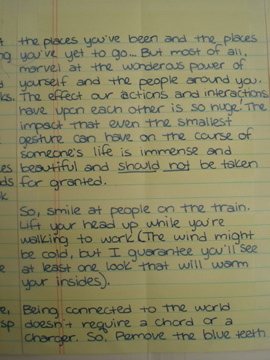 the places you've been and the places
you've yet to go... But most of all,
marvel at the wonderous power of
yourself and the people around you.
The effect our actions and interactions
have upon each other is so huge. The
impact that even the smallest
gesture can have on the course of
someone's life is immense and
beautiful and should not be taken
for granted.
So, smile at people on the train.
Lift your head up while you're
walking to work (The wind might
be cold, but I guarantee you'll see
at least one look that will warm
your insides).
Being connected to the world
doesn't require a chord or a
charger. So, Remove the blue teeth